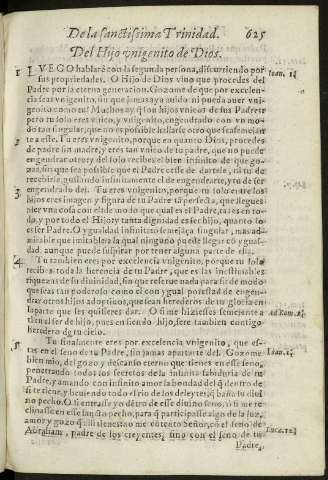 De la sanctissima Trinidad. 625
Del Hijo vnigenito de Dios.
1 LVEGO hablaré con la segunda persona, discurriendo por
sus propriedades. O Hijo de Dios viuo que procedes del Ioan. 1.
Padre por eterna generacion. Gozome de que por excelen-
cia seas vnigenito, sin que jamas aya auido ni pueda auer vni-
genito como tu! Muchos ay que son hijos vnicos de sus Padres:
pero tu solo eres vnico, y vnigenito, engendrado con vn mo-
do tan singular, que no es posible hallarse otro que
a este. Tu eres vnigenito, porque en quanto Dios, procedes
2 de padre sin madre, y eres tan vnico de tu padre, que no puede
engendrar otro y del solo recibes el bien infinito de que go-
zas, sin que sea posible que el Padre cesse de dartele, ni tu de
recibirle, gustando infinitamente el de engendrarte, y tu de ser
3 engendrado del. Tu eres vnigenito, porque tu solo entre los
hijos eres imagen y figura de tu Padre tã perfecta, que llegues
a ser vna cosa con el de modo que qual es el Padre, tal es en to-
do, y por todo el Hijo y tanta dignidad es ser hijo, quanto lo
es ser Padre. O ygualdad infinita o semejãça singular, mas ad-
mirable que imitable a la qual ninguno puede llegar cõ ygual-
dad. aunque puede suspirar por tener alguna parte de ella.
4 Tu tambien eres por excelencia vnigenito, porque tu solo
recibes toda la herencia de tu Padre, que es las inestimables
riquezas de su diuinidad, sin que reserue nada para si: de modo
que seas tan poderoso como el con potestad de engen-
drar otros hijos adoptiuos, que sean herederos de tu gloria en
la parte que les quisieres dar. O si me hiziesses semejante a Ad Rom. 8.
ti en el ser de hijo, pues en siendo hijo, sere tambien contigo
heredero de tu cielo.
5 Tu finalmente eres por excelencia vnigenito, que es-
tas en el seno de tu Padre, sin jamas apartarte del. Gozome Ioan. 1.
bien mio, del gozo y descanso eterno que tienes en esse seno,
penetrando todos los secretos de la infinita sabiduria de tu
Padre, y amando con infinito amor la bondad del q̃ dentro de
si te tiene, y beuiendo todo el rio de los deleytes, q̃ baña tu diui
no pecho. O si entrasse yo dẽtro de esse diuino seno, o si me re-
clinasse en esse sancto pecho, para q̃ participasse algo de la luz,
amor y gozo q̃ alli tienes no me cõtento Señor, cõ el seno de Luca. 16.
Abraham, padre de los creyentes, sino con el seno de tu
Padre,